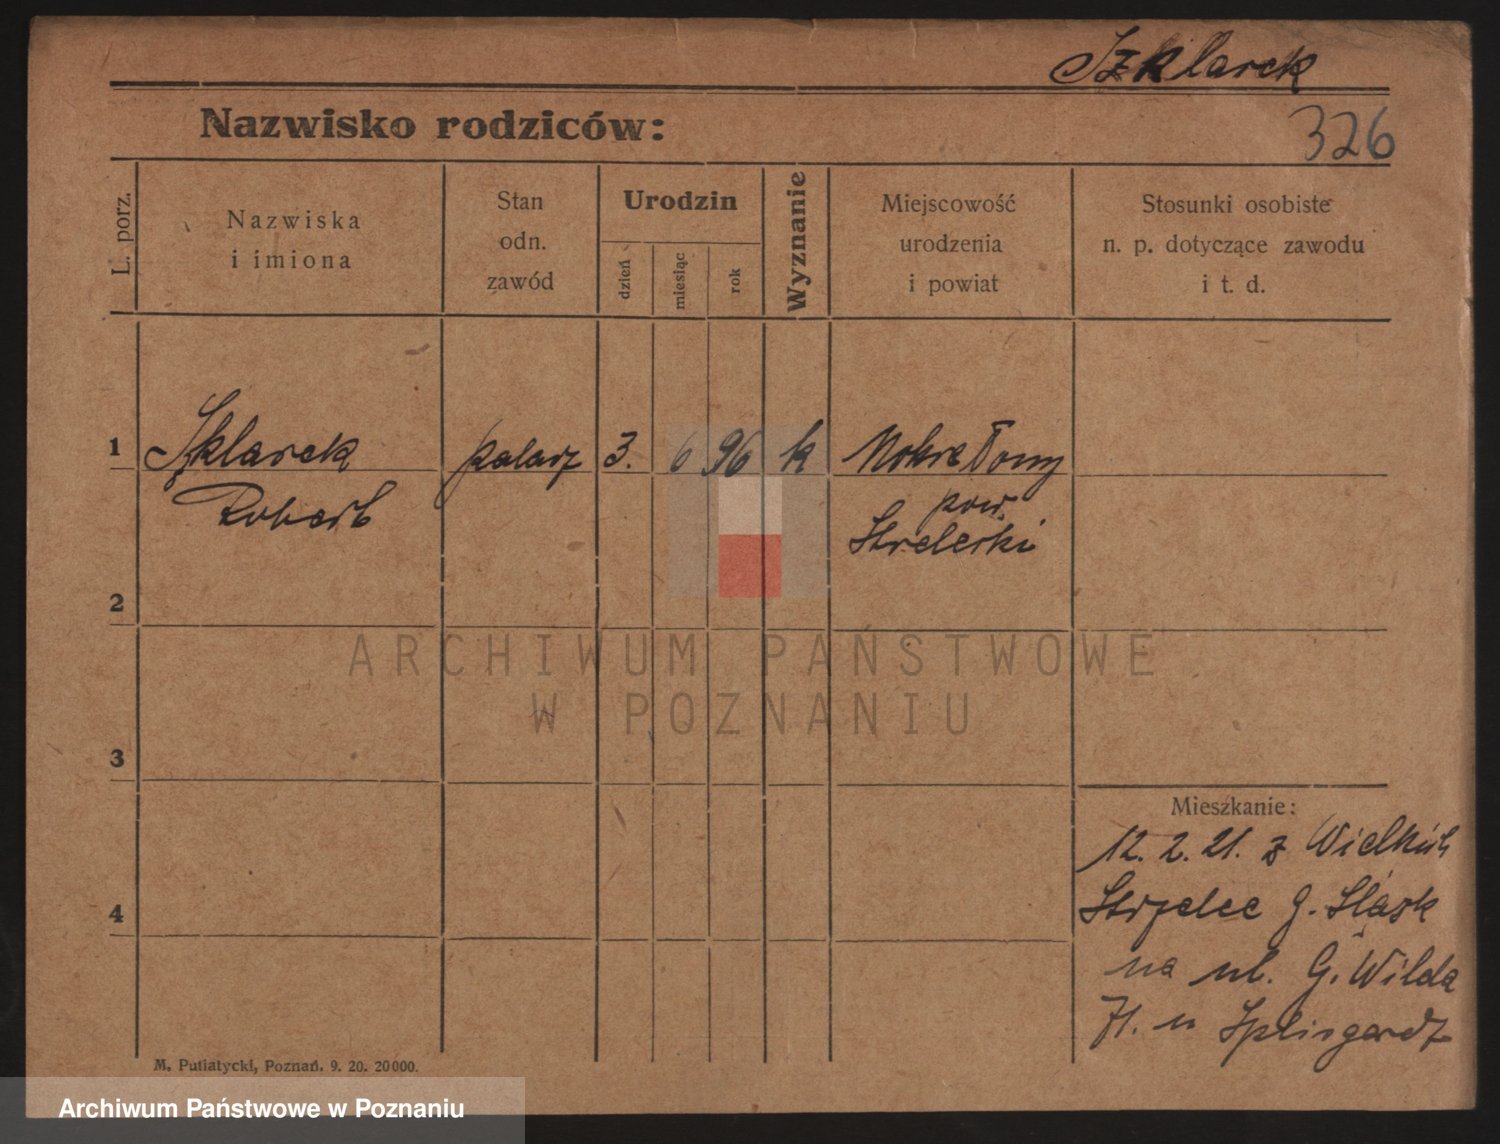 Szklarek
Nazwisko rodziców:
326
L. porz.
Nazwiska
i imiona
Stan
odn.
zawód
Urodzin
dzień
miesiąc
rok
Wyznanie
Miejscowość
urodzenia
i powiat
Stosunki osobiste
n. p. dotyczące zawodu
i t. d.
1
Szklarek
palacz
3.
6
96
k
Mokre Łony
Robert
pow.
Strelecki
2
ARCHIWUM PAŃSTWOWE
W POZNANIU
3
Mieszkanie:
12. 2. 21. z Wielkich
Strzelec G. Śląsk
na ul. G. Wilda
71. u Splisgardt
4
M. Putiatycki, Poznań. 9. 20. 20000.
Archiwum Państwowe w Poznaniu